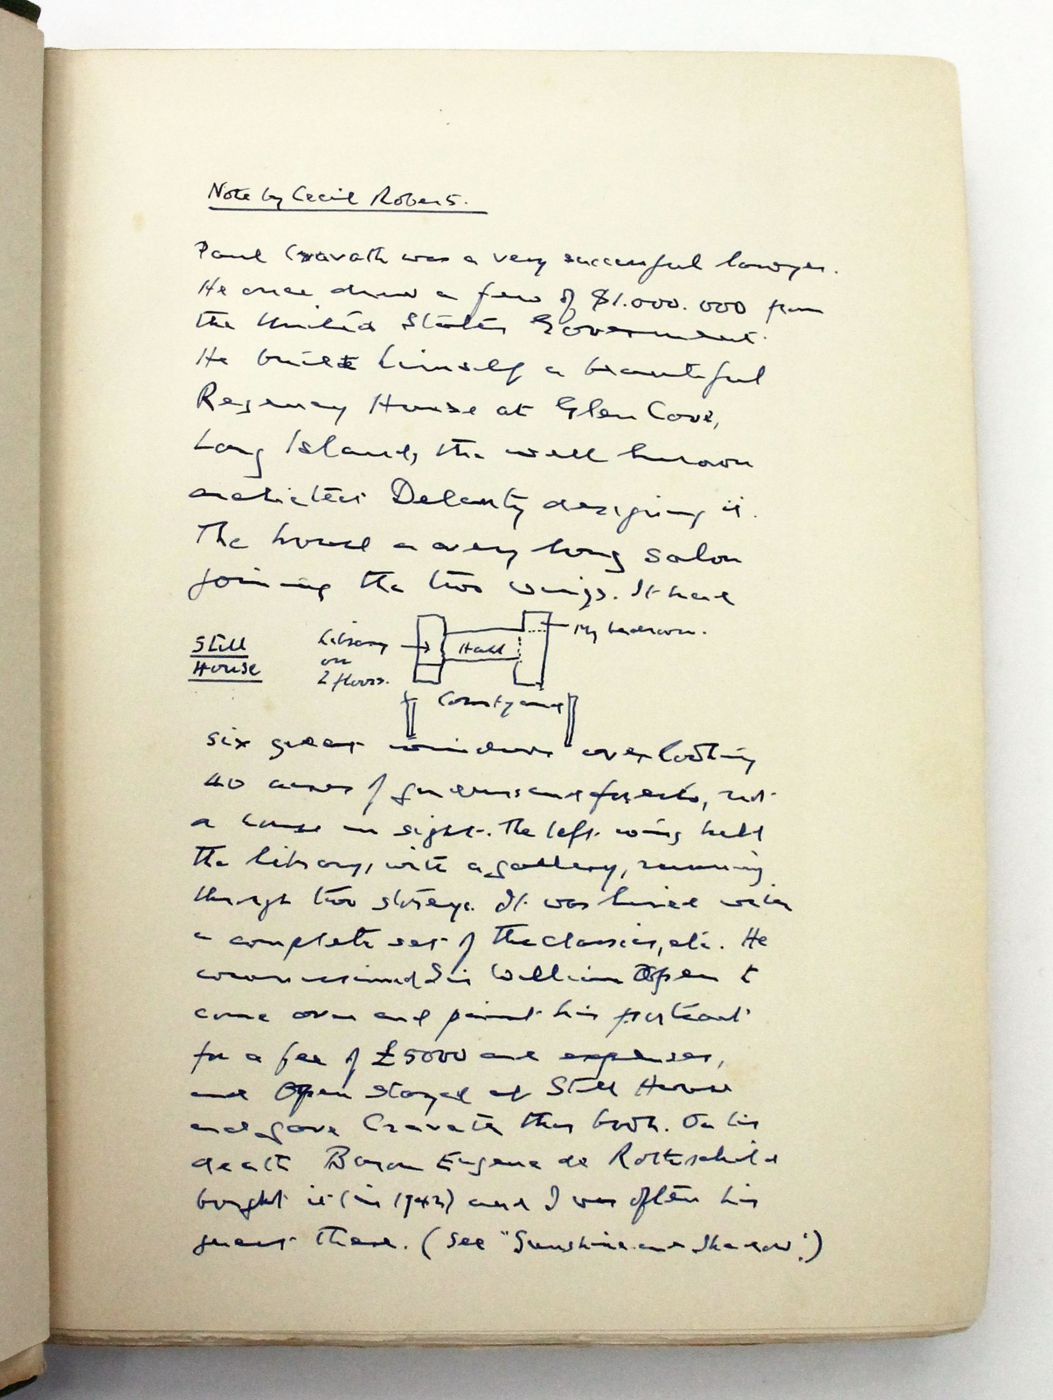 Note by Cecil Roberts.
Paul Cravath was a very successful lawyer.
He once drew a fee of $1.000.000 from
the United States Government.
He built himself a beautiful
Regency House at Glen Cove,
Long Island, the well known
architect Delanty designing it.
The house a very long salon
joining the two wings. It had
Still
House
Library
on
2 floors.
Hall
My bedroom.
Courtyard
six great windows overlooking
40 acres of gardens and forests, not
a house in sight. The left wing held
the library, with a gallery, running
through two storeys. It was lined with
a complete set of the classics, etc. He
commissioned Sir William Orpen to
come over and paint his portrait
for a fee of £5000 and expenses,
and Orpen stayed at Still House
and gave Cravath this book. On his
death Baron Eugene de Rothschild
bought it (in 1942) and I was often his
guest there. (See "Sunshine and Shadow".)